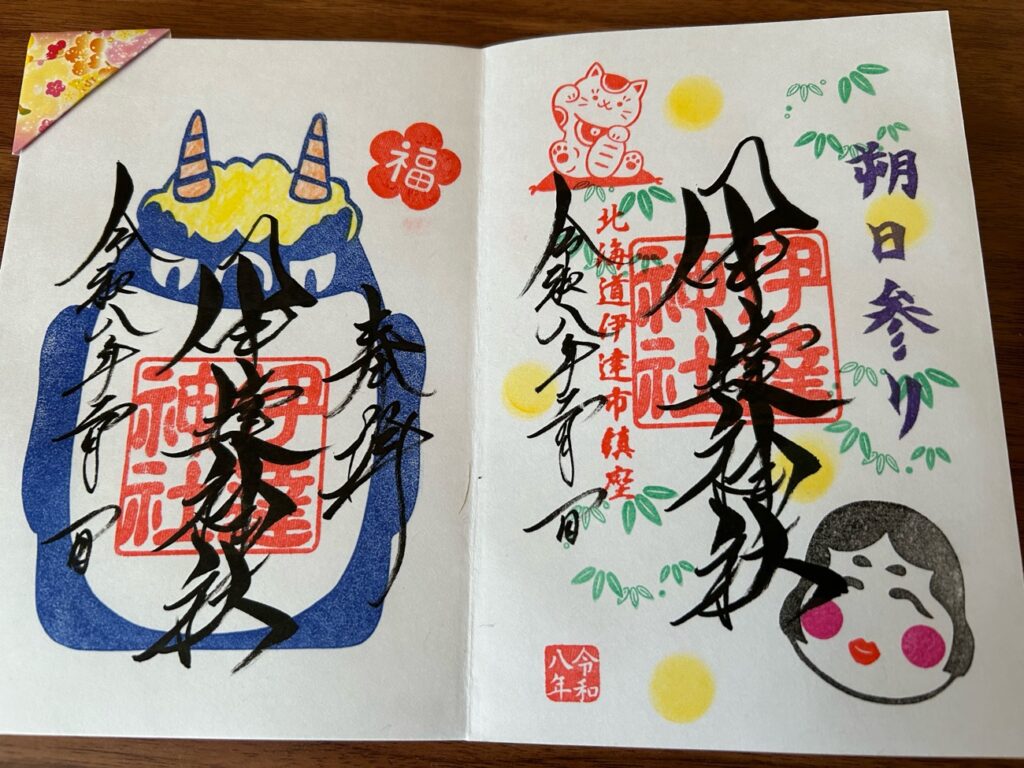 朔日参り
伊達神社
伊達神社
北海道伊達市鎮座
令和八年二月一日
令和八年
福
奉拝
伊達神社
伊達神社
令和八年二月一日